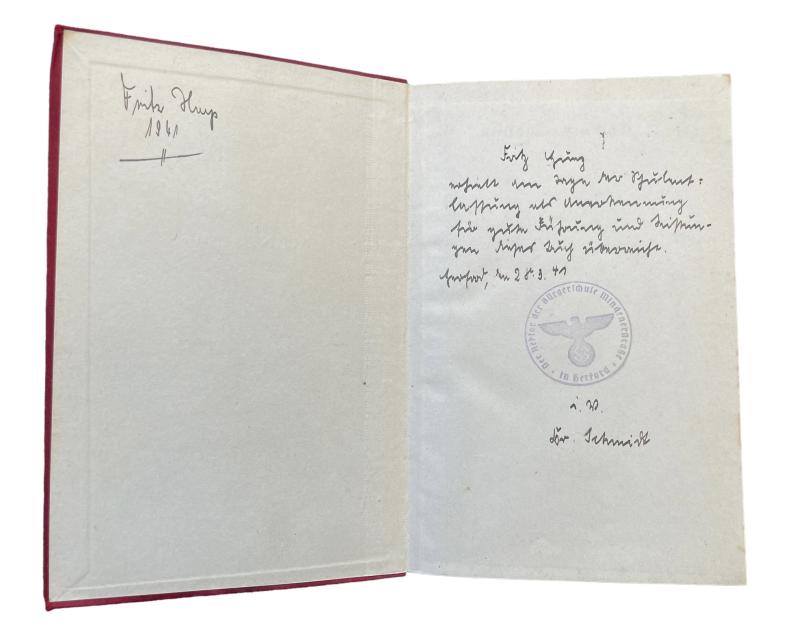 Fritz
1941
Fritz
erhielt am Tage der Schulent=
lassung als Anerkennung
für gute Führung und Leistun-
gen dieses Buch überreicht.
Herford, den 28. 3. 41
Der Rektor der Bürgerschule Mindenerstraße
in Herford
i. V.
Schmidt